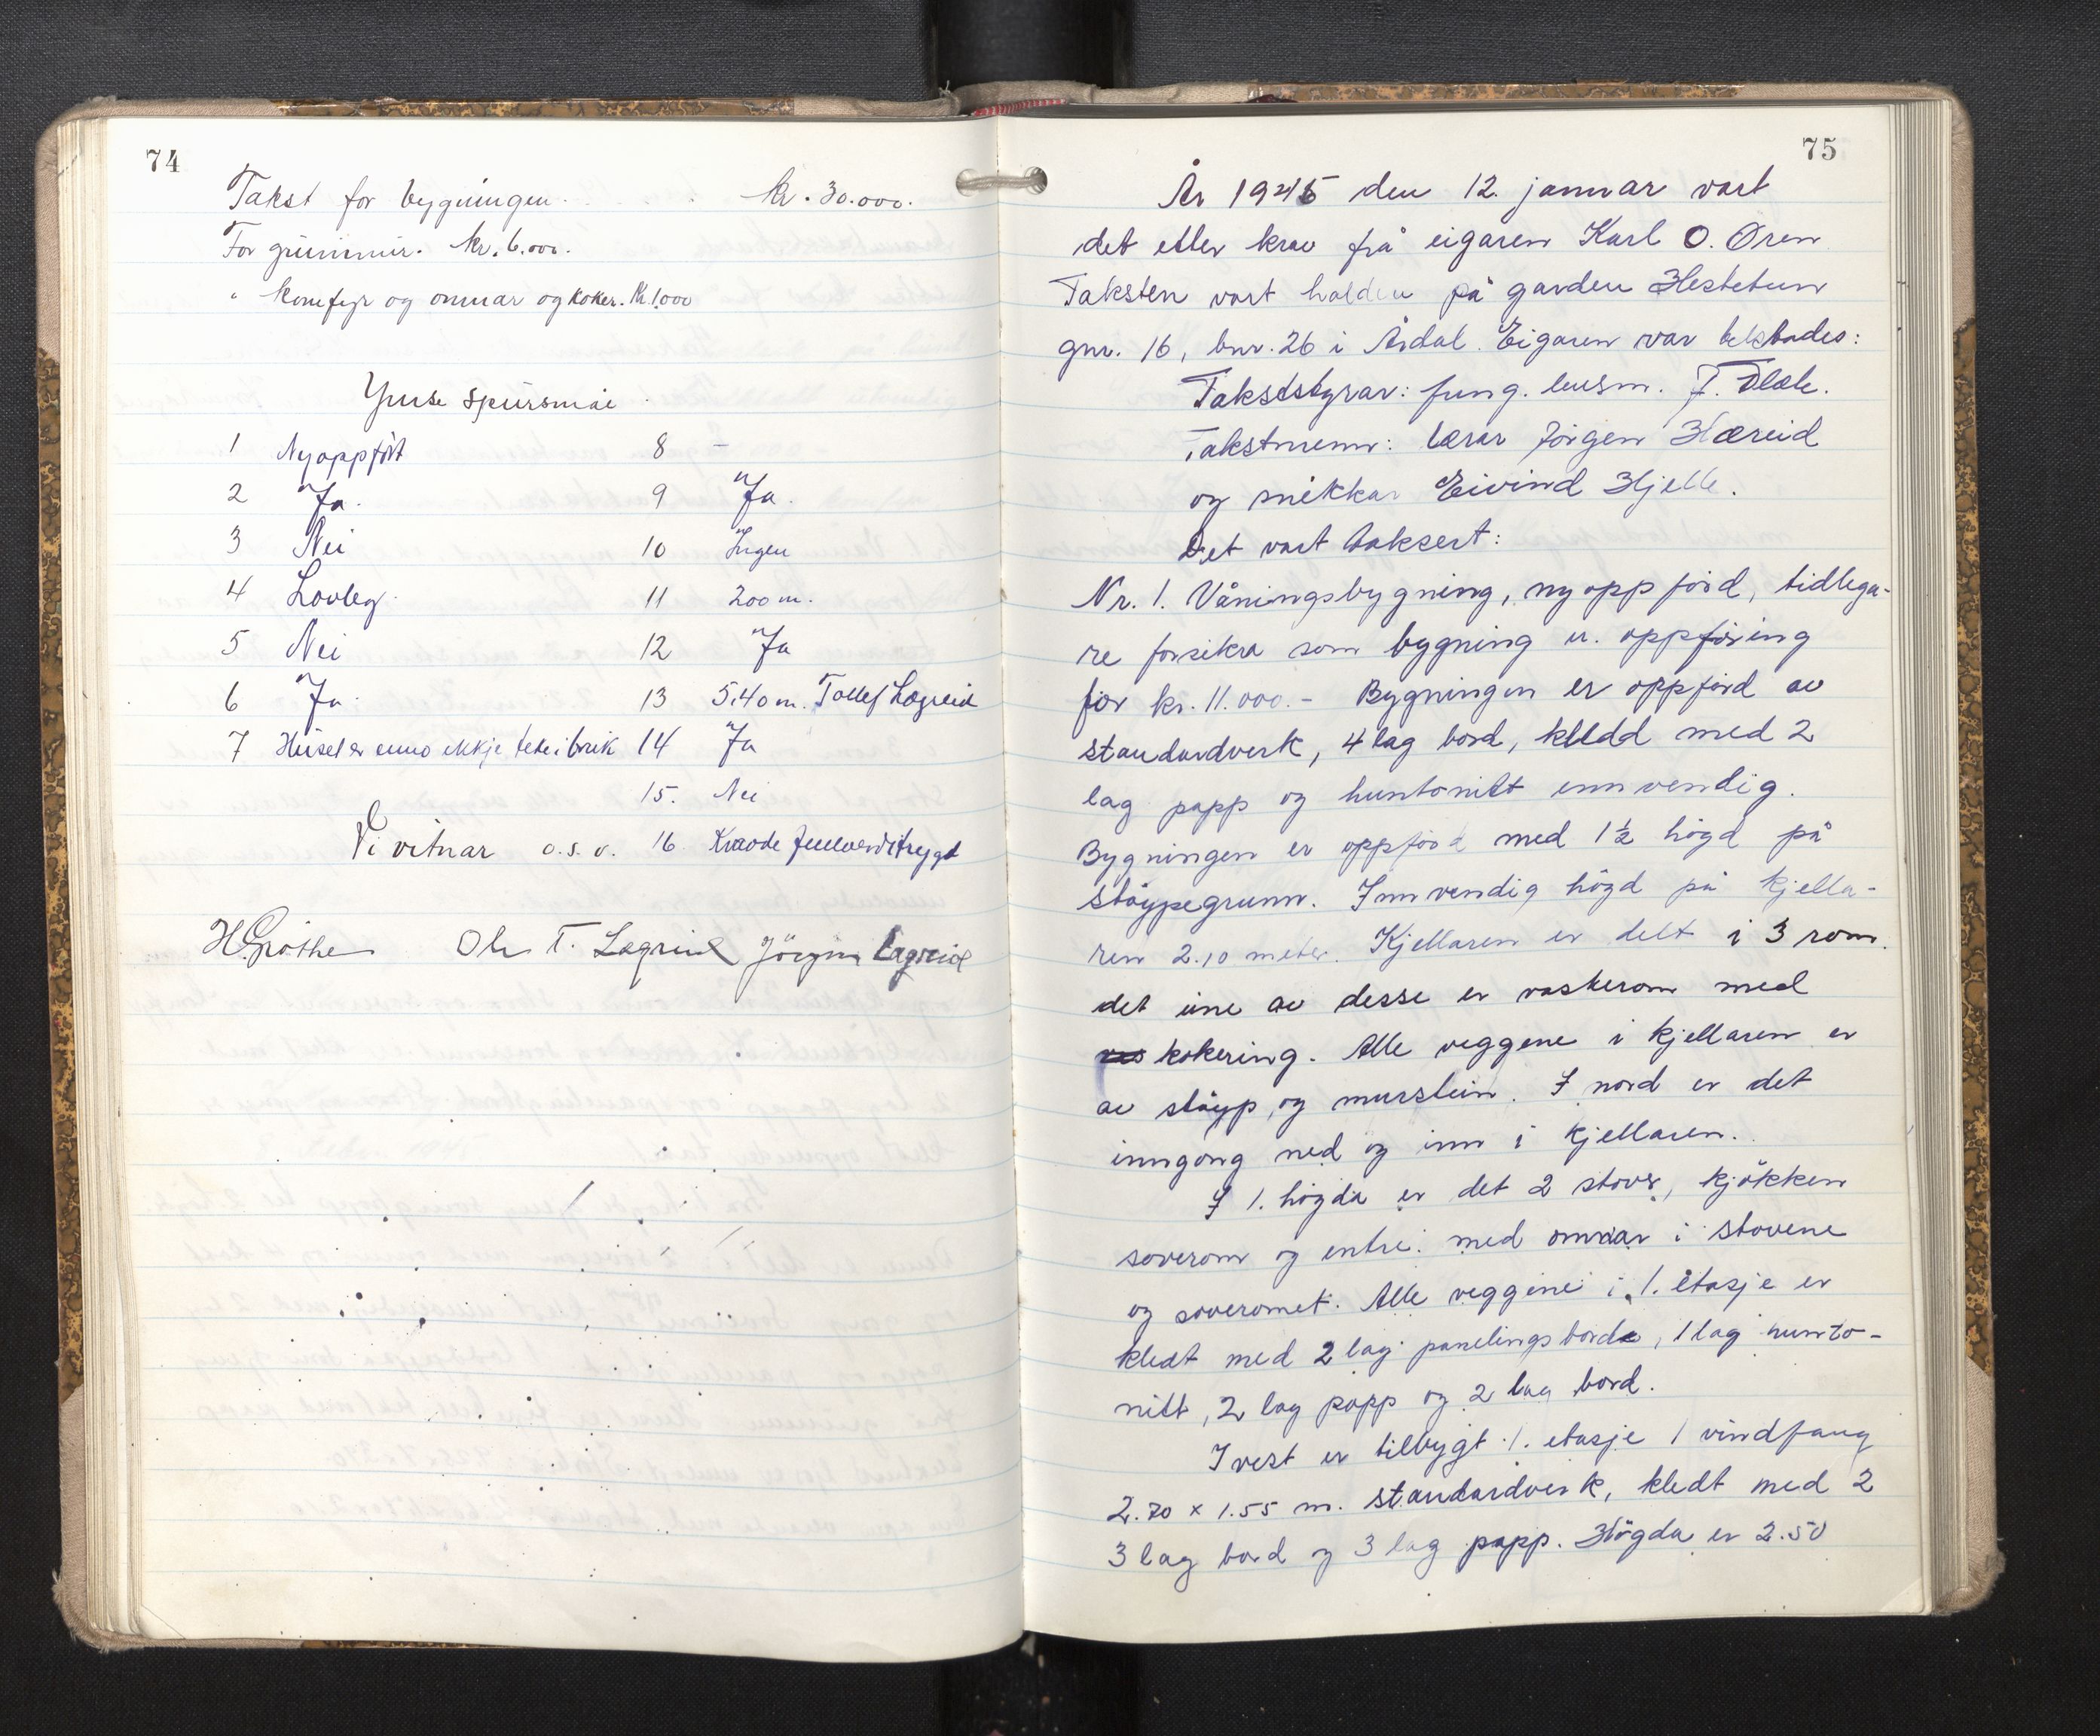 74
Takst for bygningen. kr. 30.000.
For grunnmur. kr. 6.000.
" komfyr og omnar og koker. Kr. 1.000
Ymse spursmål
1 Nyoppført 8 –
2 Ja. 9 Ja.
3 Nei 10 Ingen
4 Lovleg. 11 200 m.
5 Nei 12 Ja
6 Ja. 13 5.40 m. Tollef Lægreid
7 Huset er enno ikkje teke i bruk 14 Ja
15. Nei
Vi vitnar o.s.v. 16 Kravde fullverditrygd
H. Grøthe Ola T. Lægreid Jørgen Lægreid
75
År 1945 den 12. januar vart
det etter krav frå eigaren Karl O. Øren
Taksten vart halden på garden Hestetun
gnr. 16, bnr. 26 i Årdal. Eigaren var telstades:
Takststyrar: fung. lensm. T.
Takstmenn: lærar Jörgen Hæreid
og snikkar Eivind Hjelle.
Det vart taksert:
Nr. 1. Våningsbygning, nyoppförd, tidlega-
re forsikra som bygning u. oppföring
for kr. 11.000.- Bygningen er oppförd av
standardverk, 4 lag bord, kledd med 2
lag papp og huntonitt innvendig.
Bygningen er oppförd med 1½ högd på
stöypegrunn. Innvendig högd på kjella-
ren 2.10 meter. Kjellaren er delt i 3 rom.
det eine av desse er vaskerom med
kokering. Alle veggene i kjellaren er
av stöyp og murstein. I nord er det
inngong ned og inn i kjellaren.
I 1. högda er det 2 stover, kjökken
soverom og entre. med omnar i stovene
og soveromet. Alle veggene i 1. etasje er
kledt med 2 lag panelingsbord, 1 lag hunto-
nitt, 2 lag papp og 2 lag bord.
I vest er tilbygt 1. etasje 1 vindfang
2.70 x 1.55 m. standardverk, kledt med 2
3 lag bord og 3 lag papp. Högda er 2.50